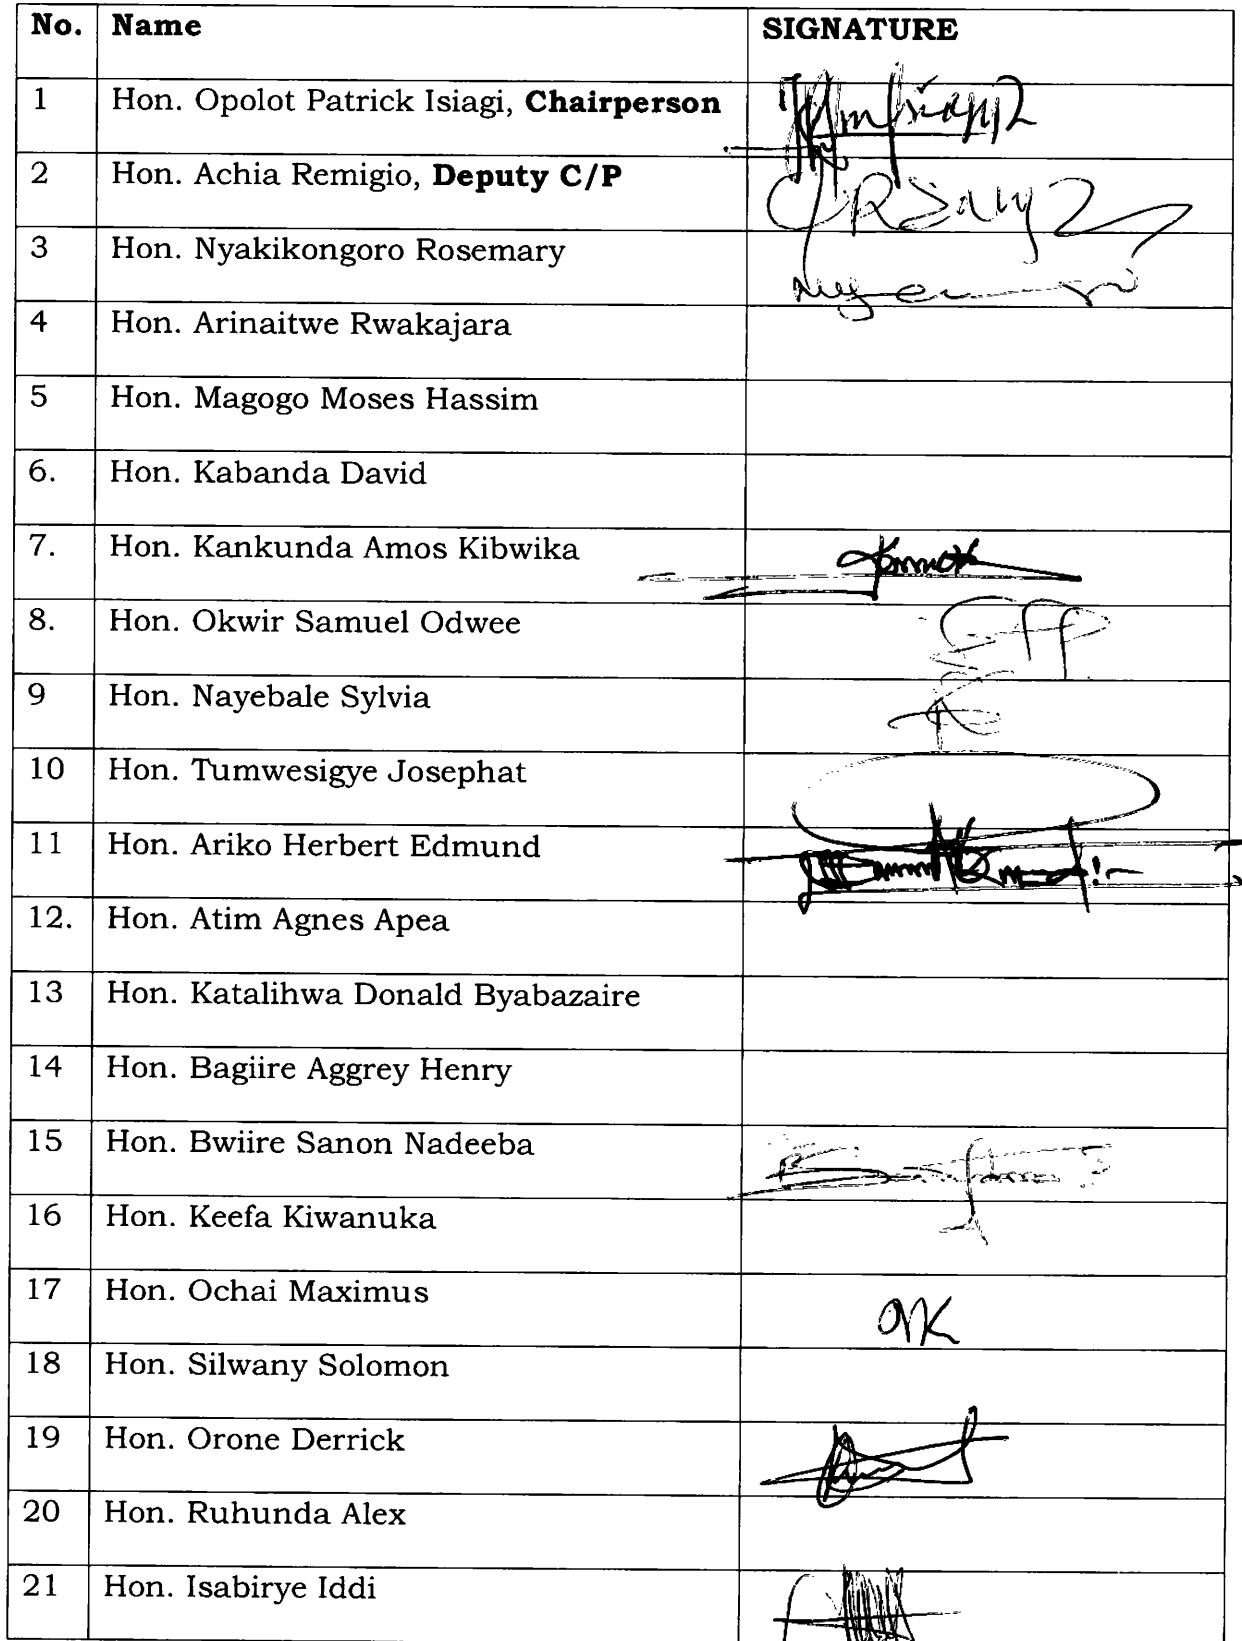 No. Name SIGNATURE
1 Hon. Opolot Patrick Isiagi, Chairperson
2 Hon. Achia Remigio, Deputy C/P
3 Hon. Nyakikongoro Rosemary
4 Hon. Arinaitwe Rwakajara
5 Hon. Magogo Moses Hassim
6. Hon. Kabanda David
7. Hon. Kankunda Amos Kibwika
8. Hon. Okwir Samuel Odwee
9 Hon. Nayebale Sylvia
10 Hon. Tumwesigye Josephat
11 Hon. Ariko Herbert Edmund
12. Hon. Atim Agnes Apea
13 Hon. Katalihwa Donald Byabazaire
14 Hon. Bagiire Aggrey Henry
15 Hon. Bwiire Sanon Nadeeba
16 Hon. Keefa Kiwanuka
17 Hon. Ochai Maximus
18 Hon. Silwany Solomon
19 Hon. Orone Derrick
20 Hon. Ruhunda Alex
21 Hon. Isabirye Iddi